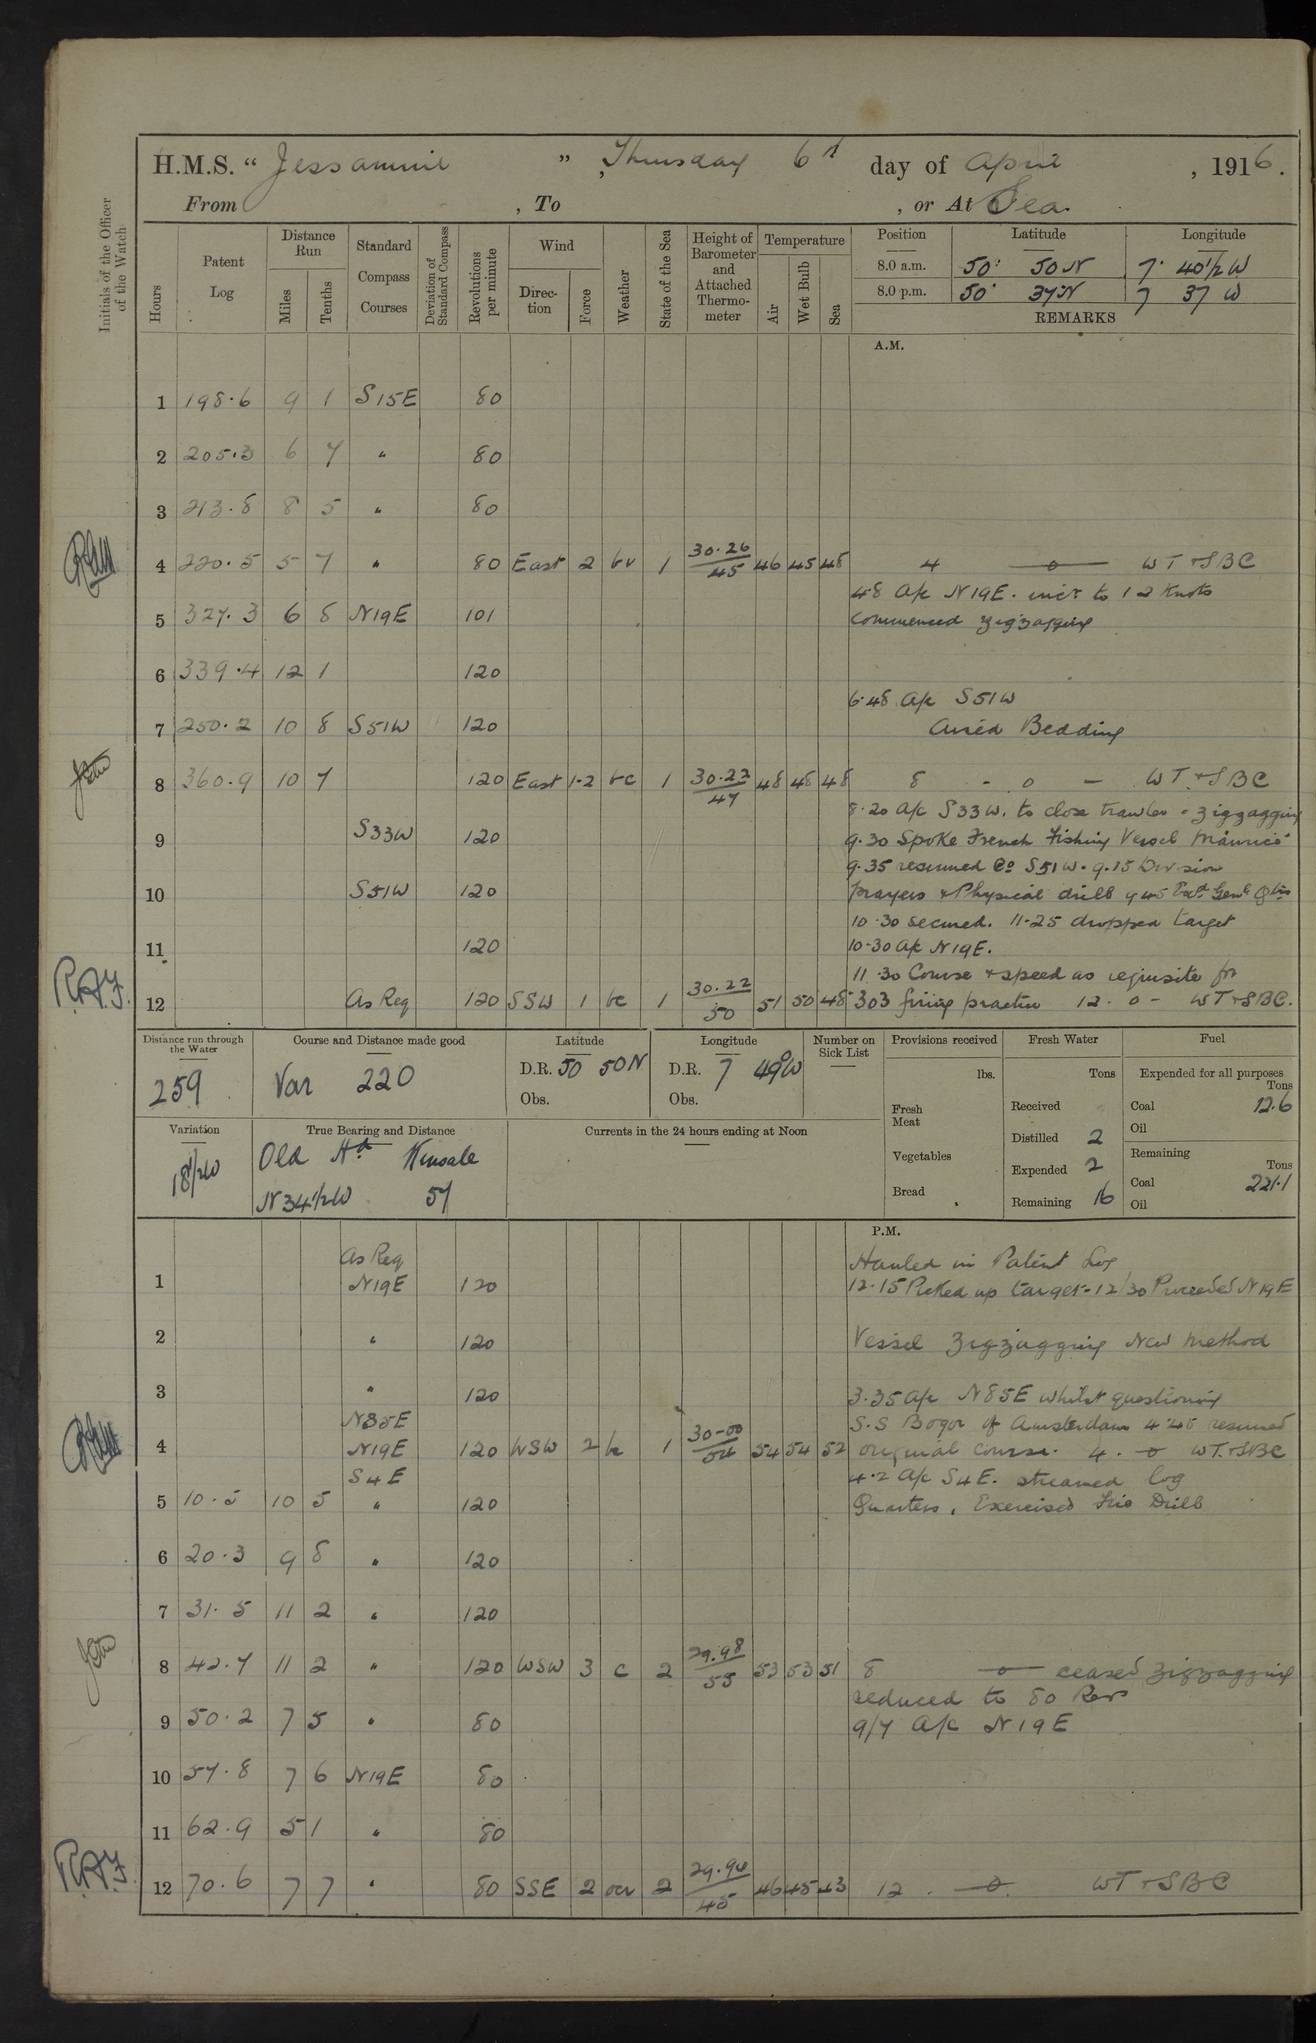 H.M.S. “ Jessamine ” , Thursday 6th day of April , 1916.
From , To , or At Sea.
Initials of the Officer of the Watch
Hours
Patent Log
Distance Run
Miles
Tenths
Standard Compass Courses
Deviation of Standard Compass
Revolutions per minute
Wind
Direction
Force
Weather
State of the Sea
Height of Barometer and Attached Thermometer
Temperature
Air
Wet Bulb
Sea
Position Latitude Longitude
8.0 a.m. 50° 50 N 7° 40 1/2 W
8.0 p.m. 50° 37 N 7 37 W
REMARKS
A.M.
1 198.6 9 1 S15E 80
2 205.3 6 7 " 80
3 213.8 8 5 " 80
4 220.5 5 7 " 80 East 2 bv 1 30.26/45 46 45 48 4 —o— WT+SBC
4.8 A/c N19E. incr to 12 Knots
5 327.3 6 8 N19E 101 Commenced zigzagging
6 339.4 12 1 120
6.48 A/c S51W
7 250.2 10 8 S51W 120 Aired Bedding
8 360.9 10 7 120 East 1-2 bc 1 30.22/47 48 48 48 8 - o - WT.+SBC
8.20 A/c S33W. to close trawler - zigzagging
9 S33W 120 9.30 Spoke French Fishing Vessel
9.35 resumed Co S51W. 9.15 Division
10 S51W 120 prayers & Physical drill 9.45 Genl Qtrs
10.30 secured. 11.25 dropped target
11 120 10.30 A/c N19E.
11.30 Course & speed as requisite for
12 As Req 120 SSW 1 bc 1 30.22/50 51 50 48 303 firing practice 12. o - WT+SBC.
Distance run through the Water
259
Course and Distance made good
Var 220
Latitude
D.R. 50 50N
Obs.
Longitude
D.R. 7 49W
Obs.
Number on Sick List
Provisions received
lbs.
Fresh Meat
Vegetables
Bread
Fresh Water
Tons
Received
Distilled 2
Expended 2
Remaining 16
Fuel
Expended for all purposes
Tons
Coal 12.6
Oil
Remaining
Tons
Coal 221.1
Oil
Variation
18 1/2 W
True Bearing and Distance
Old Hd Kinsale
N 34 1/2 W 57
Currents in the 24 hours ending at Noon
P.M.
As Req Hauled in Patent Log
1 N19E 120 12.15 Picked up target - 12/30 Proceeded N19E
2 " 120 Vessel zigzagging New Method
3 " 120 3.35 A/c N85E whilst questioning
N85E S.S Bogor of Amsterdam resumed
4 N19E 120 WSW 2 bc 1 30.00/54 54 54 52 original course. 4. —o WT.+SBC
S4E 4.2 A/c S4E. streamed log
5 10.5 10 5 " 120 Quarters, Exercised Fire Drill
6 20.3 9 8 " 120
7 31.5 11 2 " 120
8 42.7 11 2 " 120 WSW 3 c 2 29.98/55 53 53 51 8 —o— ceased zigzagging
reduced to 80 Revs
9 50.2 7 5 " 80 9/7 A/c N19E
10 57.8 7 6 N19E 80
11 62.9 5 1 " 80
12 70.6 7 7 " 80 SSE 2 2 29.94/45 46 45 43 12. —o— WT+SBC